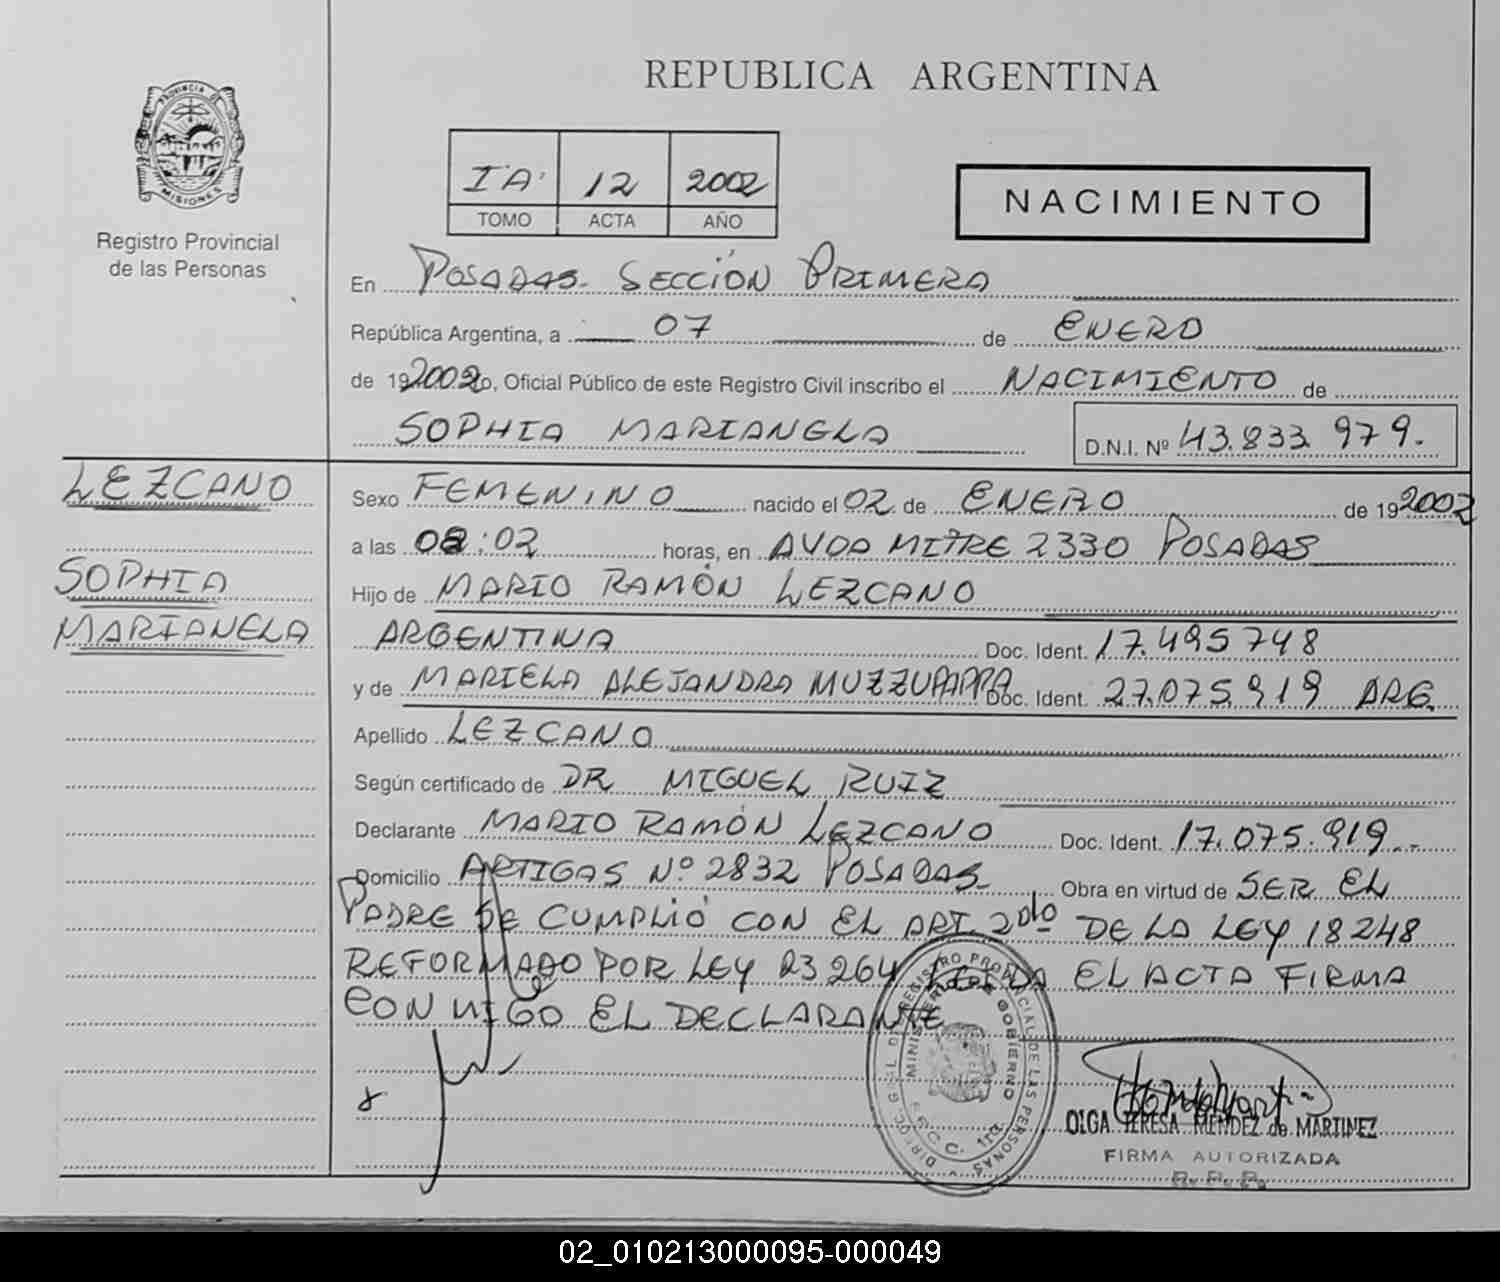 REPUBLICA ARGENTINA
PROVINCIA DE MISIONES
Registro Provincial
de las Personas
IA 12 2002
TOMO ACTA AÑO
NACIMIENTO
En POSADAS- SECCIÓN PRIMERA
República Argentina, a 07 de ENERO
de 192002, Oficial Público de este Registro Civil inscribo el NACIMIENTO de
SOPHIA MARIANELA D.N.I. Nº 43.833.979.
LEZCANO
SOPHIA
MARIANELA
Sexo FEMENINO nacido el 02 de ENERO de 192002
a las 08:02 horas, en AVDA MITRE 2330 POSADAS
Hijo de MARIO RAMÓN LEZCANO
ARGENTINA Doc. Ident. 17.495748
y de MARIELA ALEJANDRA MUZZUPAPPA Doc. Ident. 27.075.919 ARG.
Apellido LEZCANO
Según certificado de DR MIGUEL RUIZ
Declarante MARIO RAMÓN LEZCANO Doc. Ident. 17.075.919.-
Domicilio ARTIGAS Nº 2832 POSADAS- Obra en virtud de SER EL
PADRE SE CUMPLIÓ CON EL ART. 2do DE LA LEY 18248
REFORMADO POR LEY 23264 LEIDA EL ACTA FIRMA
CONMIGO EL DECLARANTE
DIREC. GRAL. DE REGISTRO PROVINCIAL DE LAS PERSONAS
MINISTERIO DE GOBIERNO
OLGA TERESA MENDEZ de MARTINEZ
FIRMA AUTORIZADA
R. P. P.
02_010213000095-000049